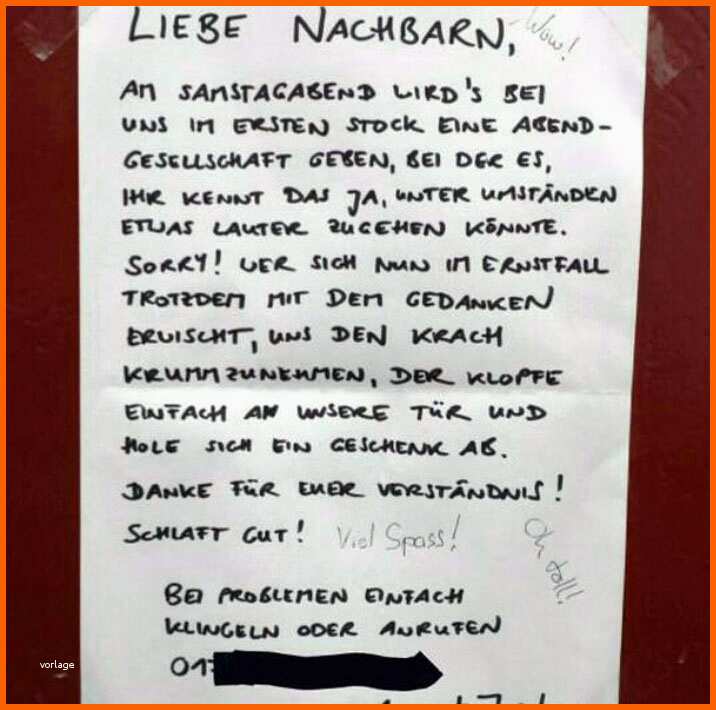 LIEBE NACHBARN,
Wow!
AM SAMSTAGABEND WIRD'S BEI
UNS IM ERSTEN STOCK EINE ABEND-
GESELLSCHAFT GEBEN, BEI DER ES,
IHR KENNT DAS JA, UNTER UMSTÄNDEN
ETWAS LAUTER ZUGEHEN KÖNNTE.
SORRY! WER SICH NUN IM ERNSTFALL
TROTZDEM MIT DEM GEDANKEN
ERWISCHT, UNS DEN KRACH
KRUMMZUNEHMEN, DER KLOPFE
EINFACH AN UNSERE TÜR UND
HOLE SICH EIN GESCHENK AB.
DANKE FÜR EUER VERSTÄNDNIS!
SCHLAFT GUT! Viel Spass!
Oh toll!
BEI PROBLEMEN EINFACH
KLINGELN ODER ANRUFEN
017
vorlage